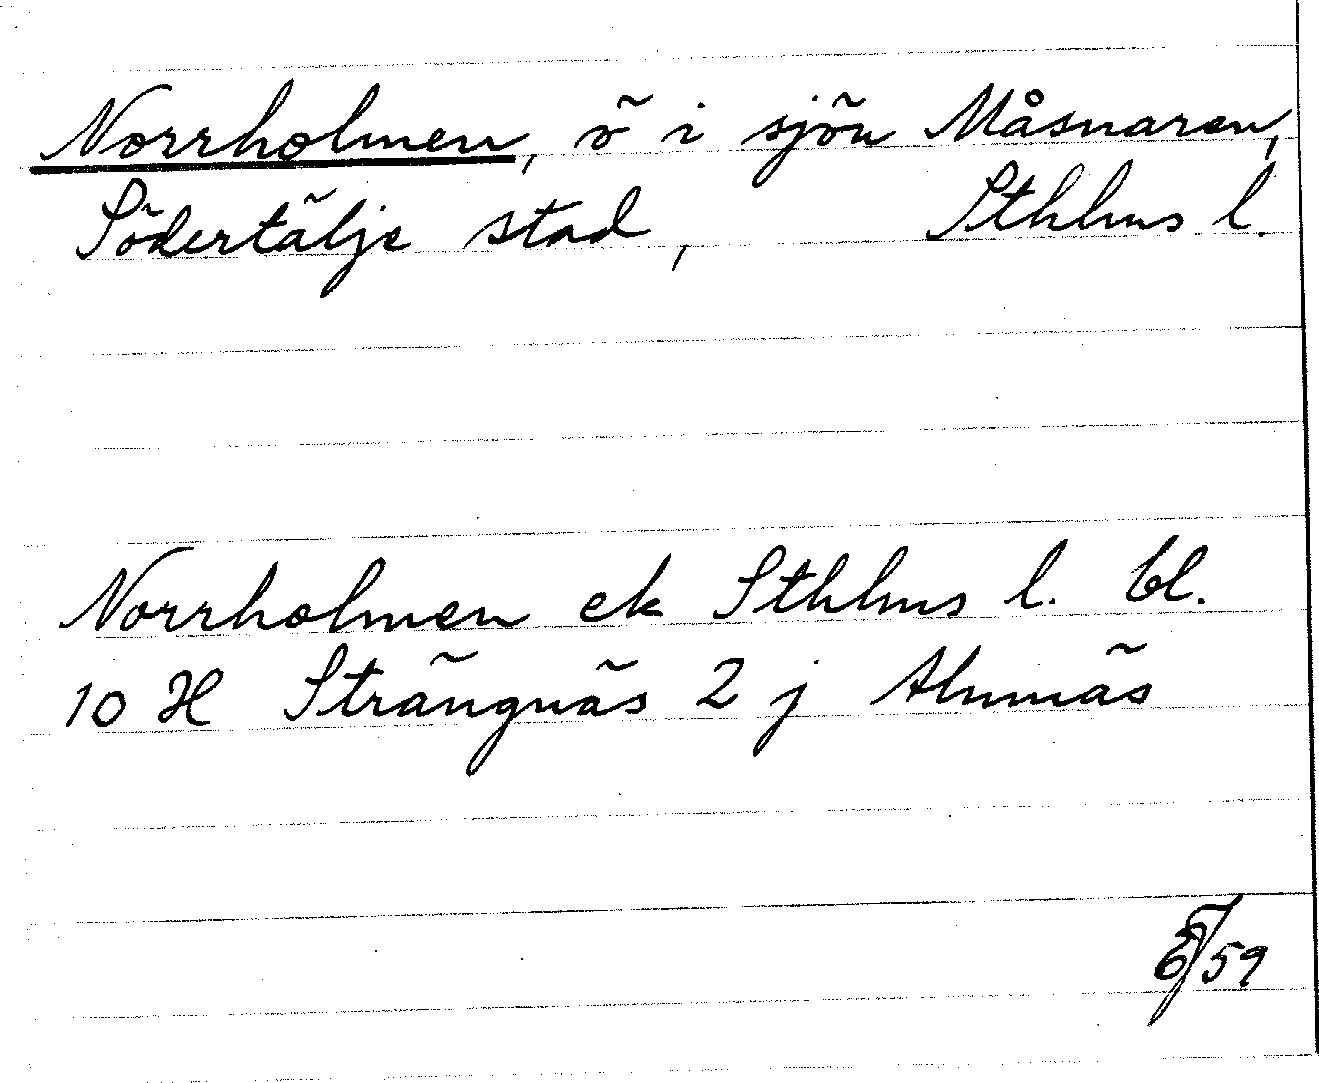 Norrholmen, ö i sjön Måsnaren,
Södertälje stad, Sthlms l.
Norrholmen ek Sthlms l. bl.
10 H Strängnäs 2 j Almnäs
59